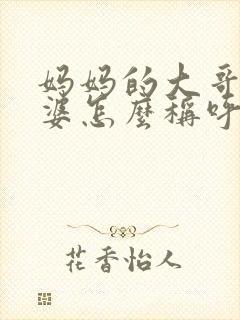 妈妈的大哥
婆怎麼稱呼
花香怡人